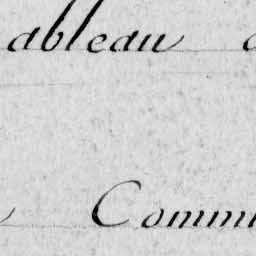 ableau
Comm